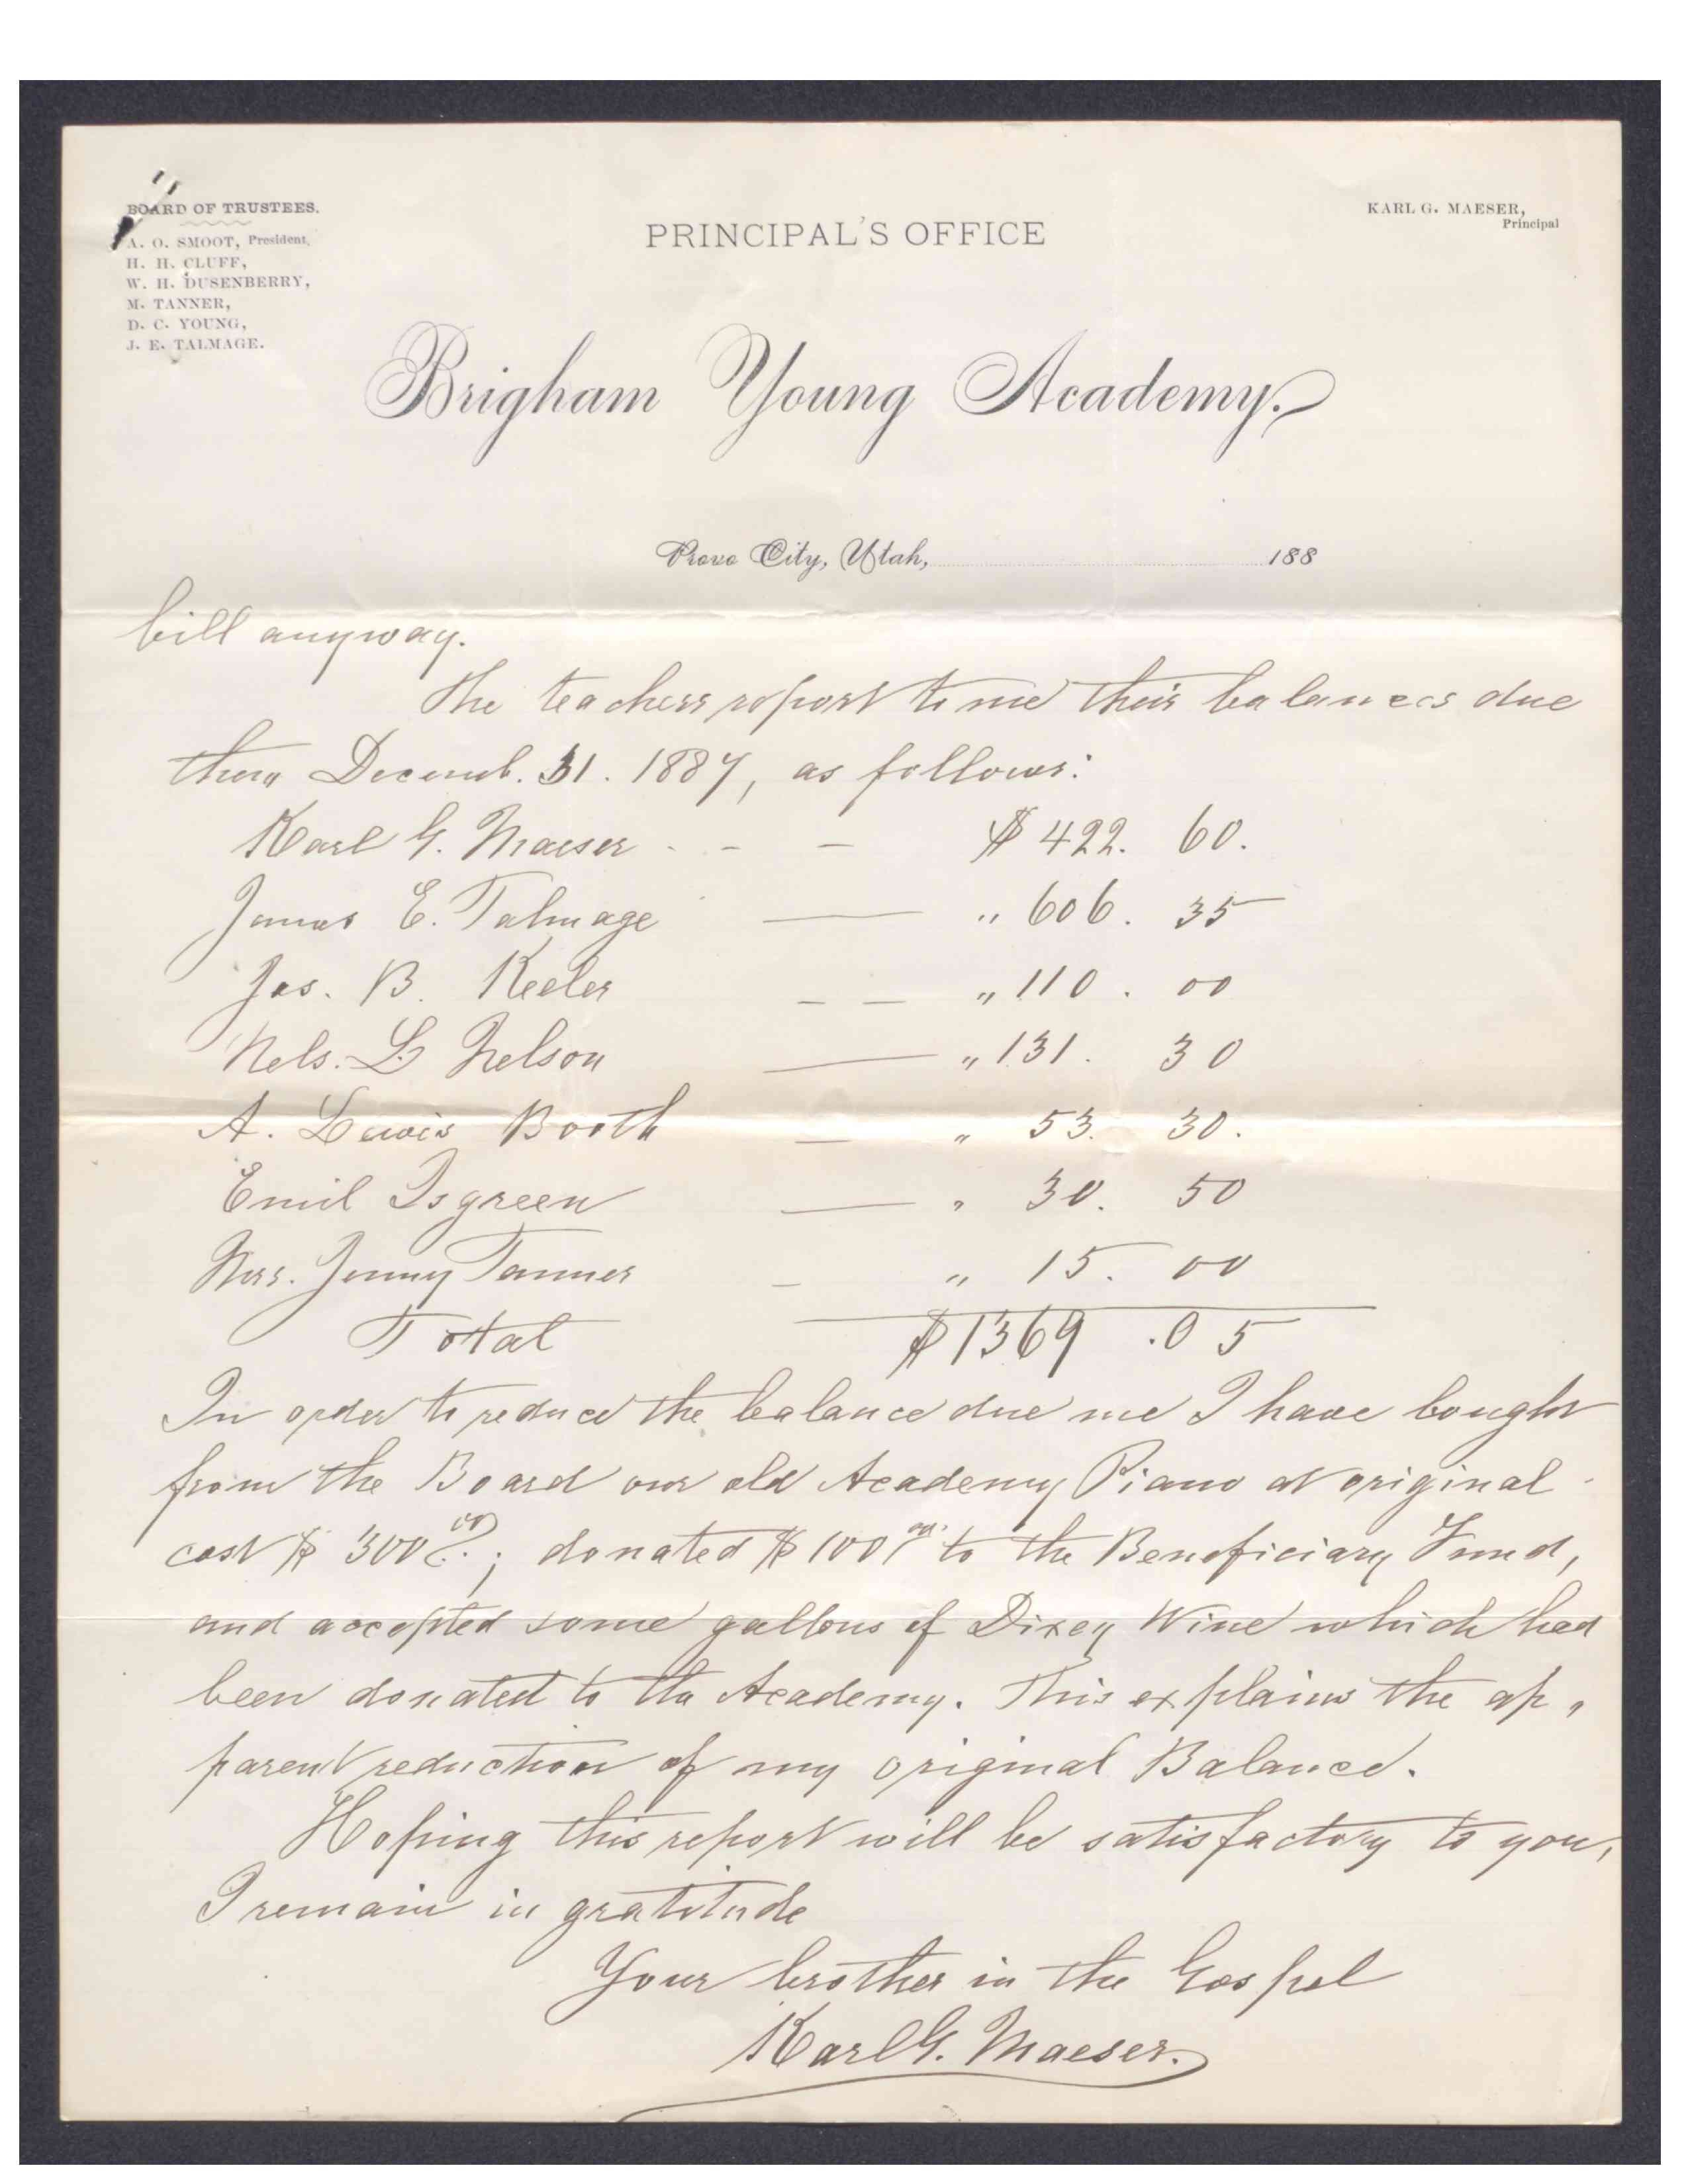 BOARD OF TRUSTEES.
A. O. SMOOT, President,
H. H. CLUFF,
W. H. DUSENBERRY,
M. TANNER,
D. C. YOUNG,
J. E. TALMAGE.
PRINCIPAL'S OFFICE
KARL G. MAESER,
Principal
Brigham Young Academy.
Provo City, Utah, 188
bill anyway.
The teachers report to me their balances due
them Decemb. 31. 1887, as follows:
Karl G. Maeser - - - $ 422. 60.
James E. Talmage — " 606. 35
Jos. B. Keeler — — " 110. 00
Nels. L. Nelson — " 131. 30
A. Lewis Booth — " 53. 30.
Emil Isgreen — " 30. 50
Mrs. Jenny Tanner — " 15. 00
Total $1369.05
In order to reduce the balance due me I have bought
from the Board our old Academy Piano at original
cost $ 300 00; donated $ 100 00 to the Beneficiary Fund,
and accepted some gallons of Dixey Wine which had
been donated to the Academy. This explains the ap-
parent reduction of my original Balance.
Hoping this report will be satisfactory to you,
I remain in gratitude
Your brother in the Gospel
Karl G. Maeser.